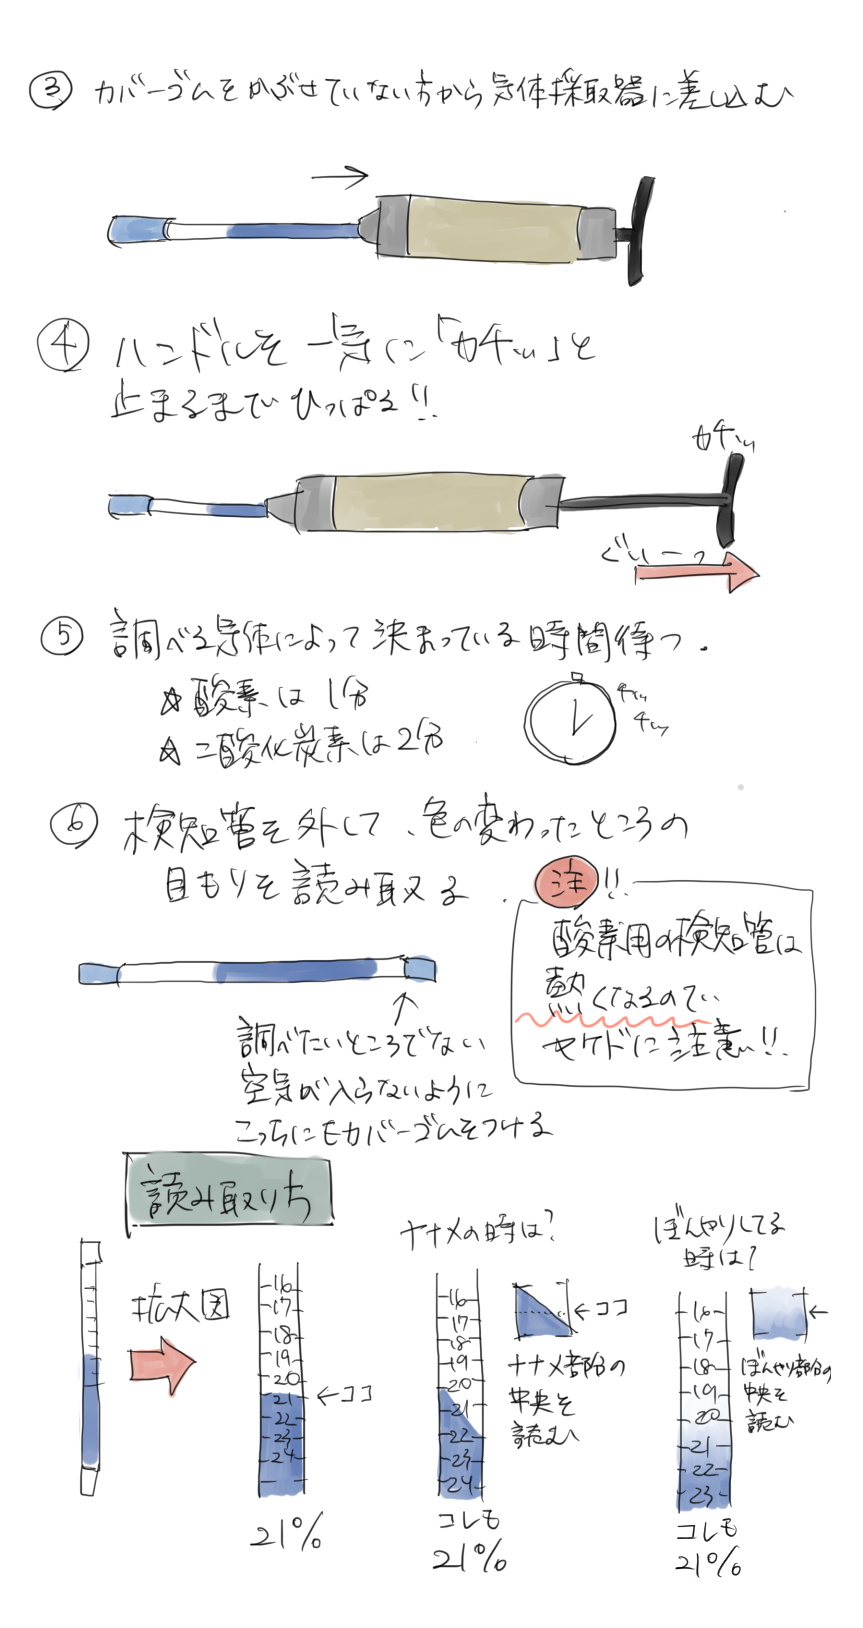 ③ カバーゴムをかぶせていない方から気体採取器に差し込む
④ ハンドルを一気に「カチッ」と
止まるまでひっぱる!!
カチッ
ぐいーっ
⑤ 調べる気体によって決まっている時間待つ.
☆酸素は1分
☆二酸化炭素は2分
チッ
チッ
⑥ 検知管を外して、色の変わったところの
目もりを読み取る.
注!!
酸素用の検知管は
熱くなるので
ヤケドに注意!!
調べたいところでない
空気が入らないように
こっちにもカバーゴムをつける
読み取り方
拡大図
16
17
18
19
20
21
22
23
24
←ココ
21%
ナナメの時は?
16
17
18
19
20
21
22
23
24
←ココ
ナナメ部分の
中央を
読む
コレも
21%
ぼんやりしてる
時は?
16
17
18
19
20
21
22
23
←
ぼんやり部分の
中央を
読む
コレも
21%